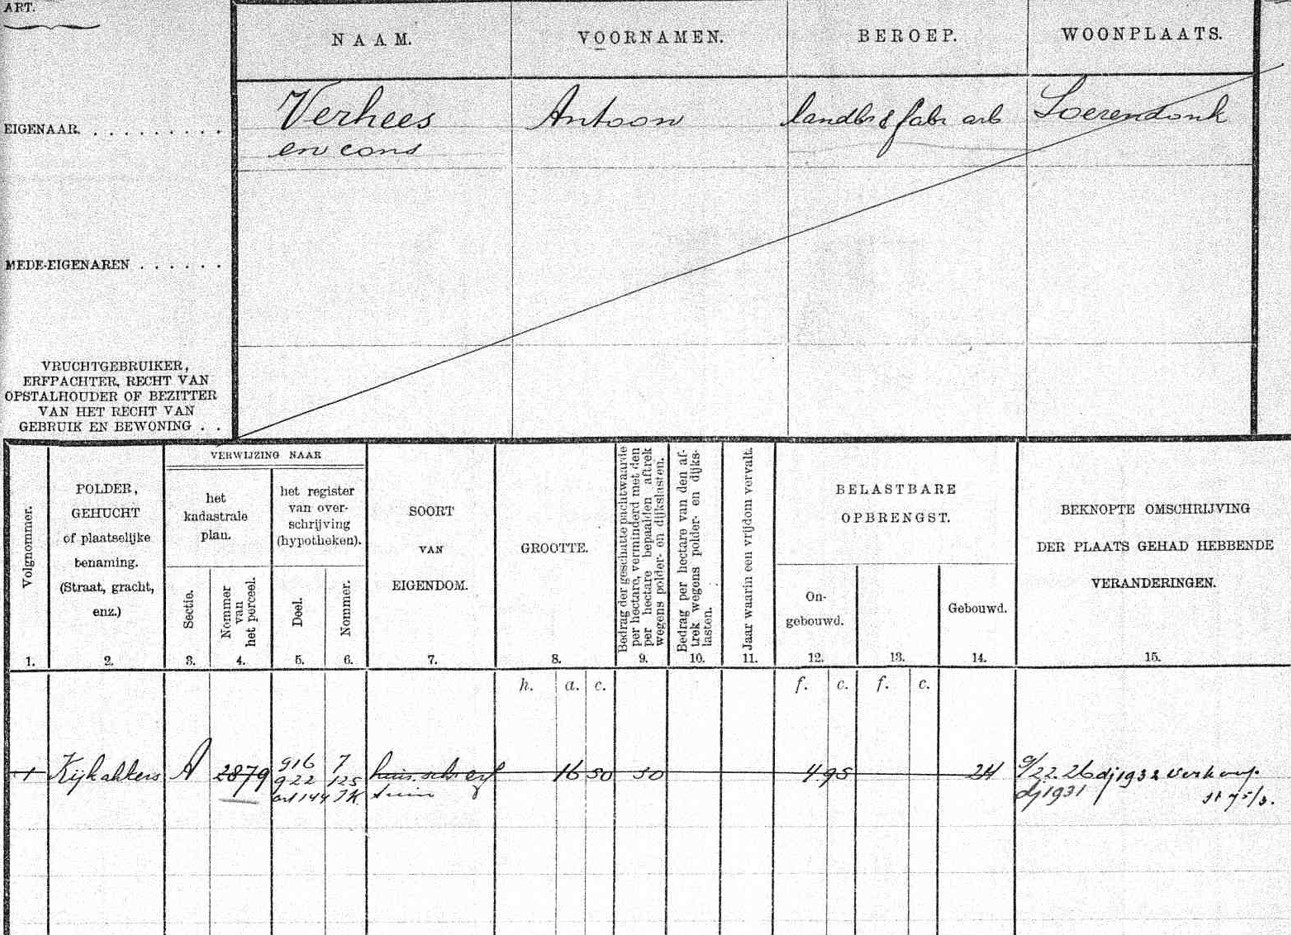 ART.
NAAM. VOORNAMEN. BEROEP. WOONPLAATS.
EIGENAAR. Verhees Antoon landbr & fabr arb Soerendonk
en cons
MEDE-EIGENAREN
VRUCHTGEBRUIKER,
ERFPACHTER, RECHT VAN
OPSTALHOUDER OF BEZITTER
VAN HET RECHT VAN
GEBRUIK EN BEWONING
Volgnommer.
1.
POLDER,
GEHUCHT
of plaatselijke
benaming.
(Straat, gracht,
enz.)
2.
VERWIJZING NAAR
het
kadastrale
plan.
Sectie.
3.
Nommer
van
het perceel.
4.
het register
van over-
schrijving
(hypotheken).
Deel.
5.
Nommer.
6.
SOORT
VAN
EIGENDOM.
7.
GROOTTE.
8.
Bedrag der geschatte pachtwaarde
per hectare, verminderd met den
per hectare bepaalden aftrek
wegens polder- en dijkslasten.
9.
Bedrag per hectare van den af-
trek wegens polder- en dijks-
lasten.
10.
Jaar waarin een vrijdom vervalt.
11.
BELASTBARE
OPBRENGST.
On-
gebouwd.
12.
13.
Gebouwd.
14.
BEKNOPTE OMSCHRIJVING
DER PLAATS GEHAD HEBBENDE
VERANDERINGEN.
15.
h. a. c. f. c. f. c.
916 7
1 Kijkakkers A 2879 922 125 huis sch erf 16 50 30 4 95 24 22.26 dj 1932 verkoop
art 144 tuin dj 1931